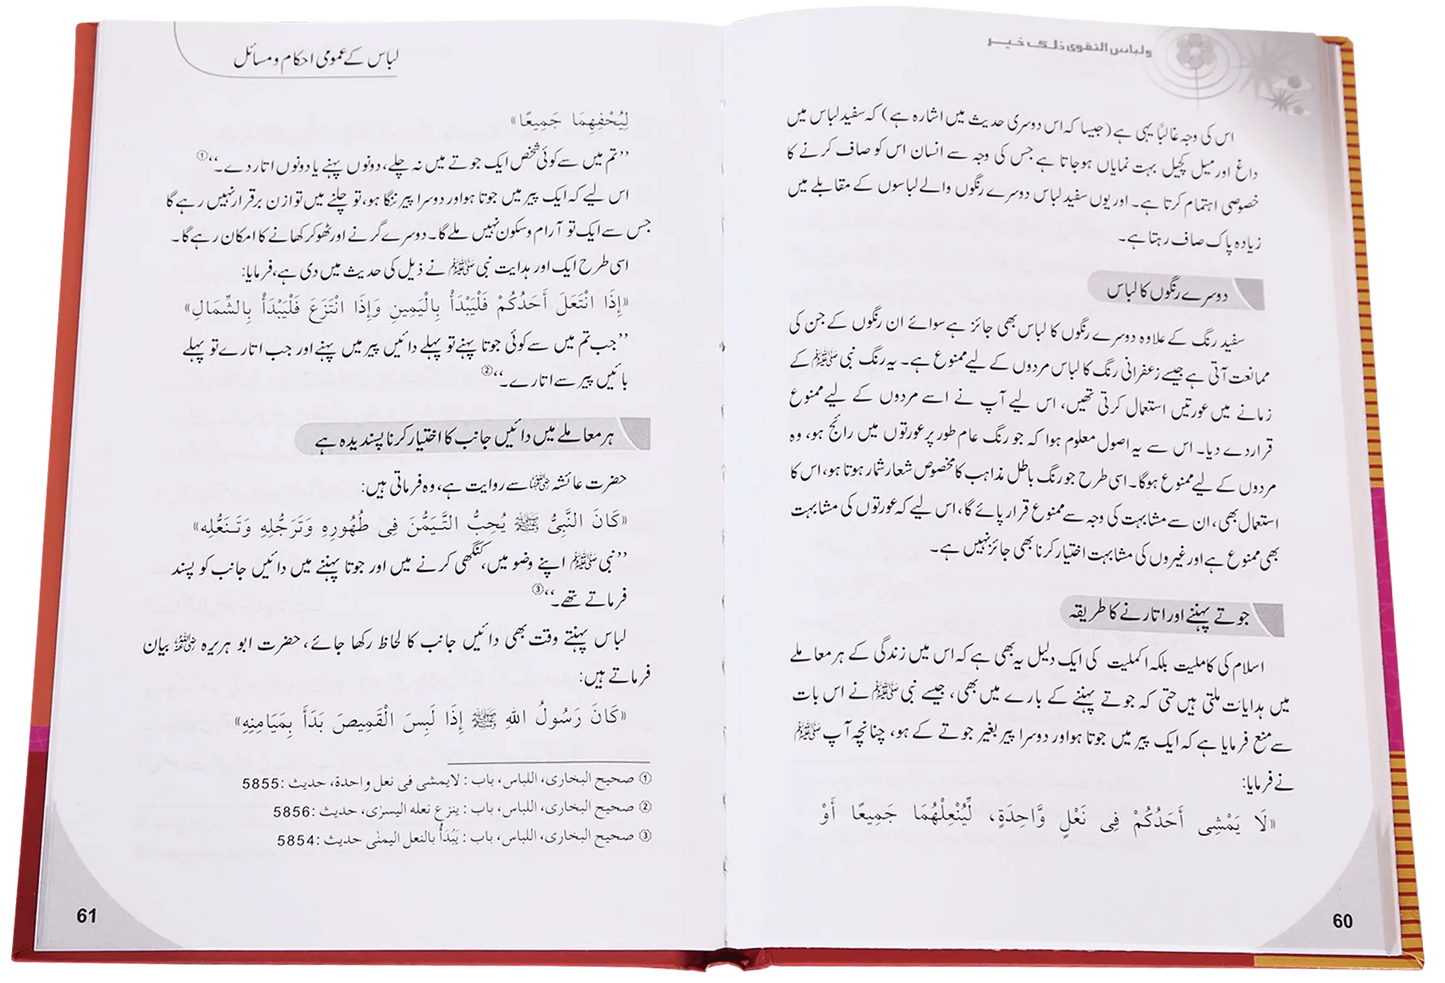 ولباس التقوى ذلك خير
اس کی وجہ غالباً یہی ہے (جیسا کہ اس دوسری حدیث میں اشارہ ہے) کہ سفید لباس میں
داغ اور میل کچیل بہت نمایاں ہوجاتا ہے جس کی وجہ سے انسان اس کو صاف کرنے کا
خصوصی اہتمام کرتا ہے۔ اور یوں سفید لباس دوسرے رنگوں والے لباسوں کے مقابلے میں
زیادہ پاک صاف رہتا ہے۔
دوسرے رنگوں کا لباس
سفید رنگ کے علاوہ دوسرے رنگوں کا لباس بھی جائز ہے سوائے ان رنگوں کے جن کی
ممانعت آتی ہے جیسے زعفرانی رنگ کا لباس مردوں کے لیے ممنوع ہے۔ یہ رنگ نبی ﷺ کے
زمانے میں عورتیں استعمال کرتی تھیں، اس لیے آپ نے اسے مردوں کے لیے ممنوع
قرار دے دیا۔ اس سے یہ اصول معلوم ہوا کہ جو رنگ عام طور پر عورتوں میں رائج ہو، وہ
مردوں کے لیے ممنوع ہوگا۔ اسی طرح جو رنگ باطل مذاہب کا مخصوص شعار شمار ہوتا ہو، اس کا
استعمال بھی، ان سے مشابہت کی وجہ سے ممنوع قرار پائے گا، اس لیے کہ عورتوں کی مشابہت
بھی ممنوع ہے اور غیروں کی مشابہت اختیار کرنا بھی جائز نہیں ہے۔
جوتے پہننے اور اتارنے کا طریقہ
اسلام کی کاملیت بلکہ اکملیت کی ایک دلیل یہ بھی ہے کہ اس میں زندگی کے ہر معاملے
میں ہدایات ملتی ہیں حتی کہ جوتے پہننے کے بارے میں بھی، جیسے نبی ﷺ نے اس بات
سے منع فرمایا ہے کہ ایک پیر میں جوتا ہو اور دوسرا پیر بغیر جوتے کے ہو، چنانچہ آپ ﷺ
نے فرمایا:
«لَا يَمْشِى أَحَدُكُمْ فِى نَعْلٍ وَّاحِدَةٍ، لِّيُنْعِلْهُمَا جَمِيعًا أَوْ
60
لباس کے عمومی احکام و مسائل
لِيُحْفِهِمَا جَمِيعًا»
’’تم میں سے کوئی شخص ایک جوتے میں نہ چلے، دونوں پہنے یا دونوں اتار دے۔‘‘①
اس لیے کہ ایک پیر میں جوتا ہو اور دوسرا پیر ننگا ہو، تو چلنے میں توازن برقرار نہیں رہے گا
جس سے ایک تو آرام و سکون نہیں ملے گا۔ دوسرے گرنے اور ٹھوکر کھانے کا امکان رہے گا۔
اسی طرح ایک اور ہدایت نبی ﷺ نے ذیل کی حدیث میں دی ہے، فرمایا:
«إِذَا انْتَعَلَ أَحَدُكُمْ فَلْيَبْدَأْ بِالْيَمِينِ وَإِذَا انْتَزَعَ فَلْيَبْدَأْ بِالشِّمَالِ»
’’جب تم میں سے کوئی جوتا پہنے تو پہلے دائیں پیر میں پہنے اور جب اتارے تو پہلے
بائیں پیر سے اتارے۔‘‘②
ہر معاملے میں دائیں جانب کا اختیار کرنا پسندیدہ ہے
حضرت عائشہ ؓ سے روایت ہے، وہ فرماتی ہیں:
«كَانَ النَّبِىُّ ﷺ يُحِبُّ التَّيَمُّنَ فِى طُهُورِهِ وَتَرَجُّلِهِ وَتَنَعُّلِه»
’’نبی ﷺ اپنے وضو میں، کنگھی کرنے میں اور جوتا پہننے میں دائیں جانب کو پسند
فرماتے تھے۔‘‘③
لباس پہنتے وقت بھی دائیں جانب کا لحاظ رکھا جائے، حضرت ابو ہریرہ ؓ بیان
فرماتے ہیں:
«كَانَ رَسُولُ اللهِ ﷺ إِذَا لَبِسَ الْقَمِيصَ بَدَأَ بِمَيَامِنِهِ»
① صحيح البخارى، اللباس، باب : لايمشى فى نعل واحدة، حديث :5855
② صحيح البخارى، اللباس، باب : ينزع نعله اليسرٰى، حديث :5856
③ صحيح البخارى، اللباس، باب : يَبْدَأُ بالنعل اليمنٰى حديث :5854
61